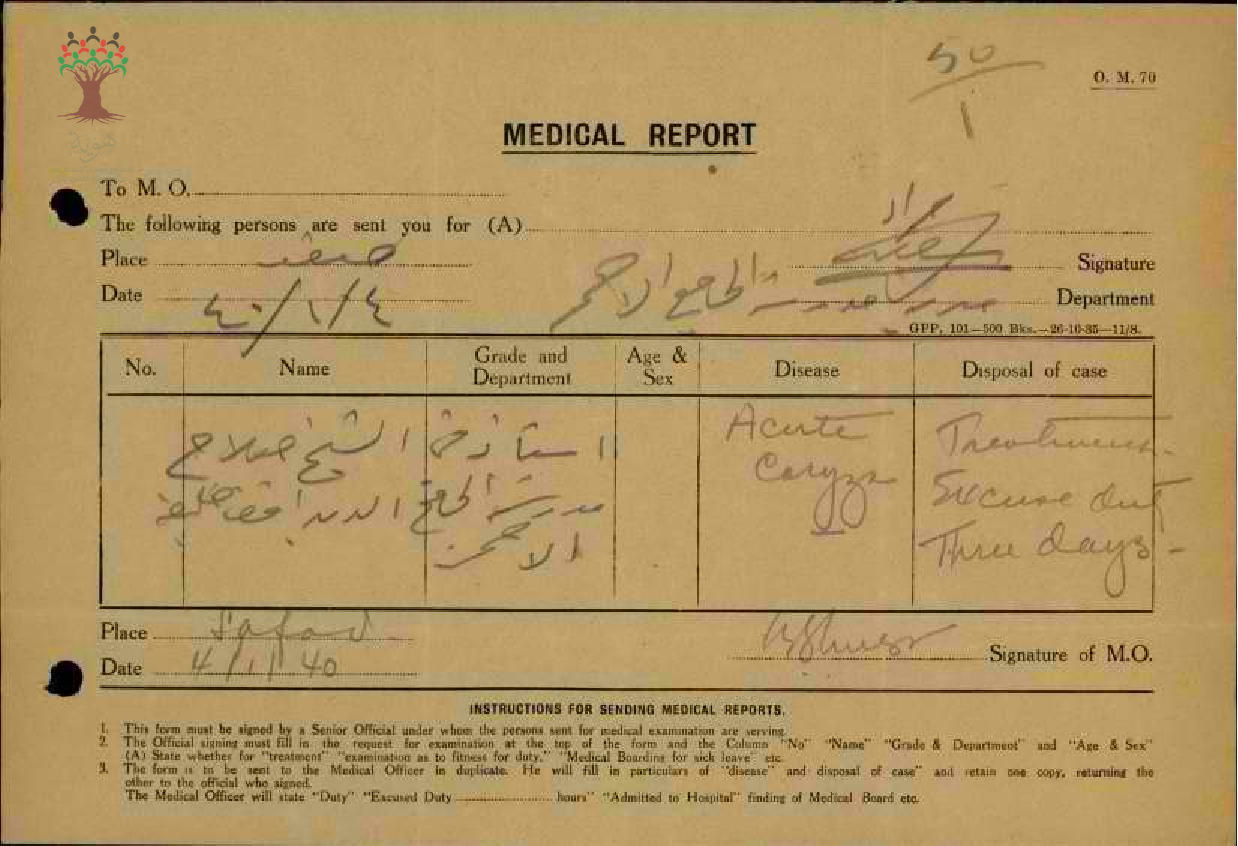 هوية
50
1
O. M. 70
MEDICAL REPORT
To M. O.
The following persons are sent you for (A)
Place صفد
Signature
Date ٤/١/٤٠
مدير مدرسة الجامع الاحمر Department
GPP. 101—500 Bks.—26-10-35—11/8.
No. Name Grade and Department Age & Sex Disease Disposal of case
الشيخ صلاح
استاذ في
مدرسة الجامع
الاحمر
Acute
Coryza
Treatment.
Excuse duty
Three days -
Place Safad
Signature of M.O.
Date 4/1/40
INSTRUCTIONS FOR SENDING MEDICAL REPORTS.
1. This form must be signed by a Senior Official under whom the persons sent for medical examination are serving.
2. The Official signing must fill in the request for examination at the top of the form and the Column "No" "Name" "Grade & Department" and "Age & Sex"
(A) State whether for "treatment" "examination as to fitness for duty," "Medical Boarding for sick leave" etc.
3. The form is to be sent to the Medical Officer in duplicate. He will fill in particulars of "disease" and disposal of case" and retain one copy, returning the
other to the official who signed.
The Medical Officer will state "Duty" "Excused Duty hours" "Admitted to Hospital" finding of Medical Board etc.